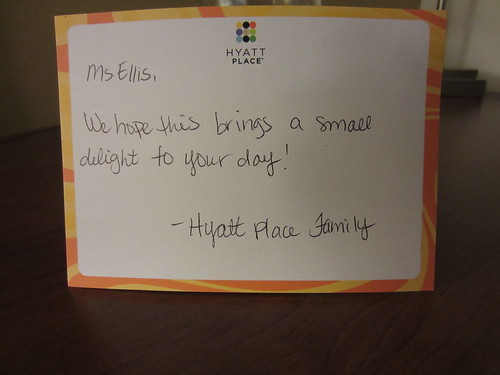 HYATT
PLACE
Ms. Ellis,
We hope this brings a small
delight to your day!
- Hyatt Place Family